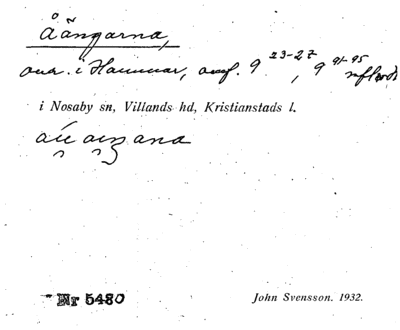 Åängarna,
i Hammar, omf. 9 23-27, 9 91-95
i Nosaby sn, Villands hd, Kristianstads l.
Nr 5480
John Svensson. 1932.